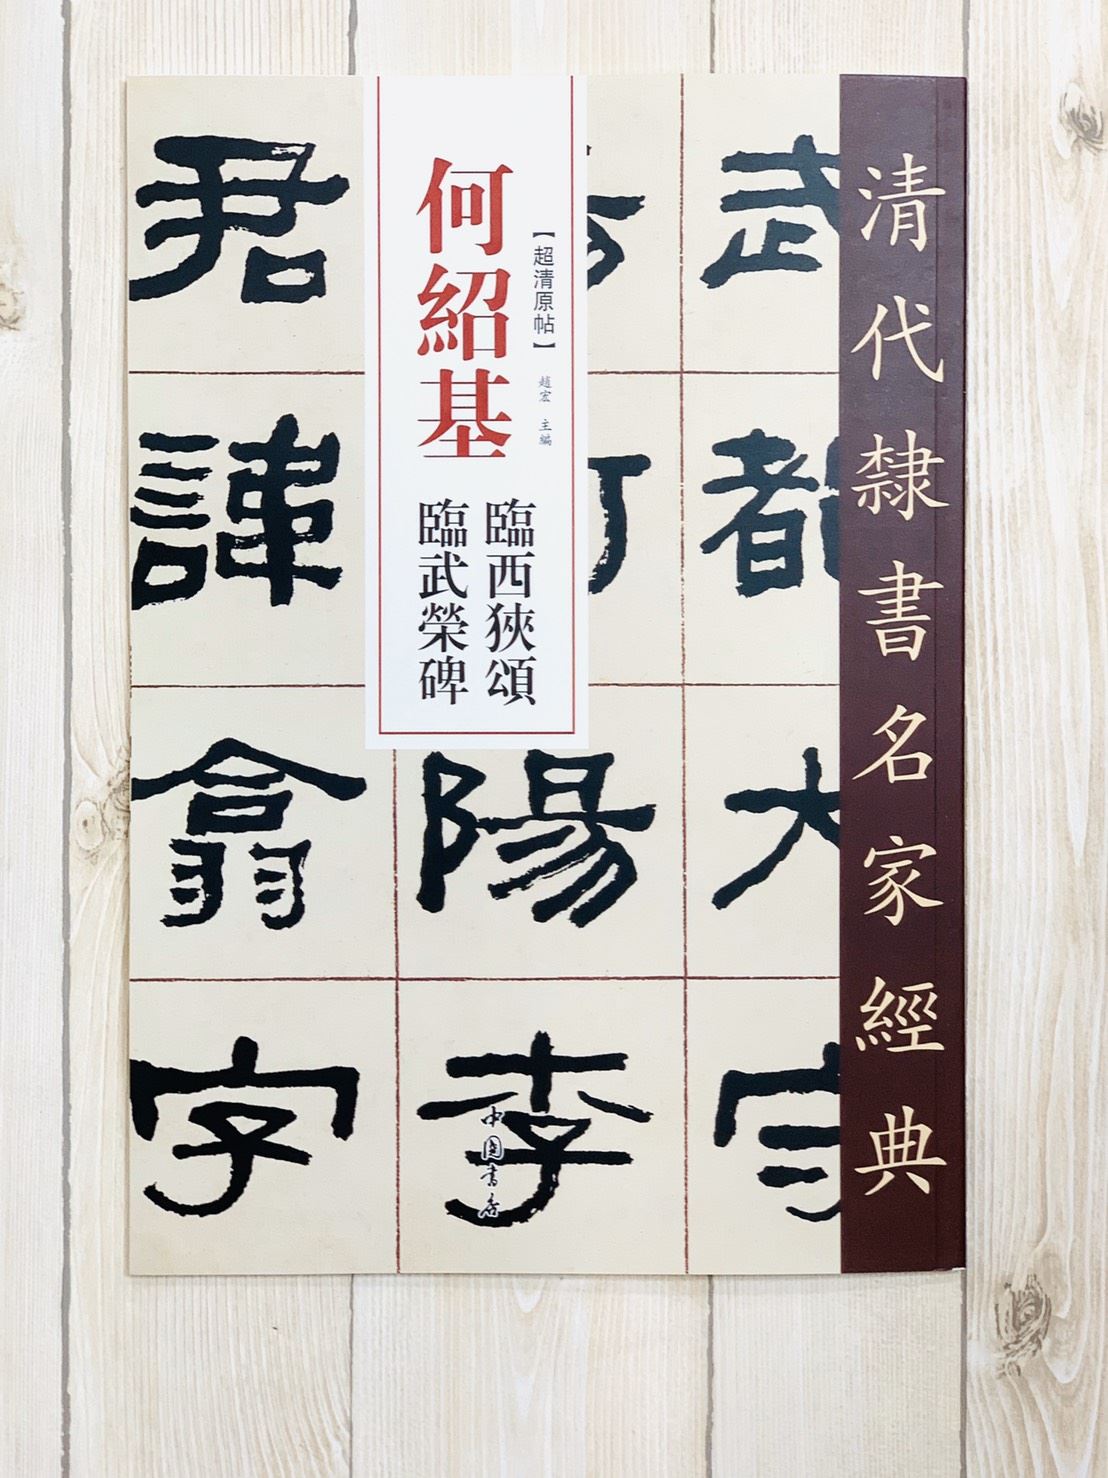 清代隸書名家經典
【超清原帖】
趙宏 主編
何紹基
臨西狹頌
臨武榮碑
武都大守
河陽李
君諱翕字
中國書店